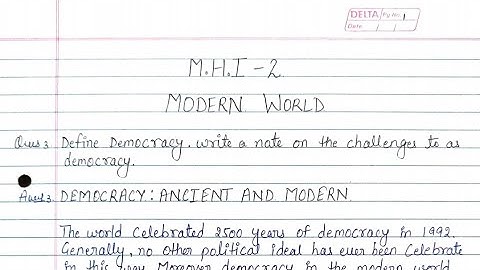 DELTA Pg No. 1
Date
M.H.I-2
MODERN WORLD
Ques 3. Define Democracy. write a note on the challenges to as
democracy.
Ans 3. DEMOCRACY: ANCIENT AND MODERN.
The world Celebrated 2500 years of democracy in 1992.
Generally, no other political ideal has ever been Celebrate
in this way. Moreover democracy in the modern world